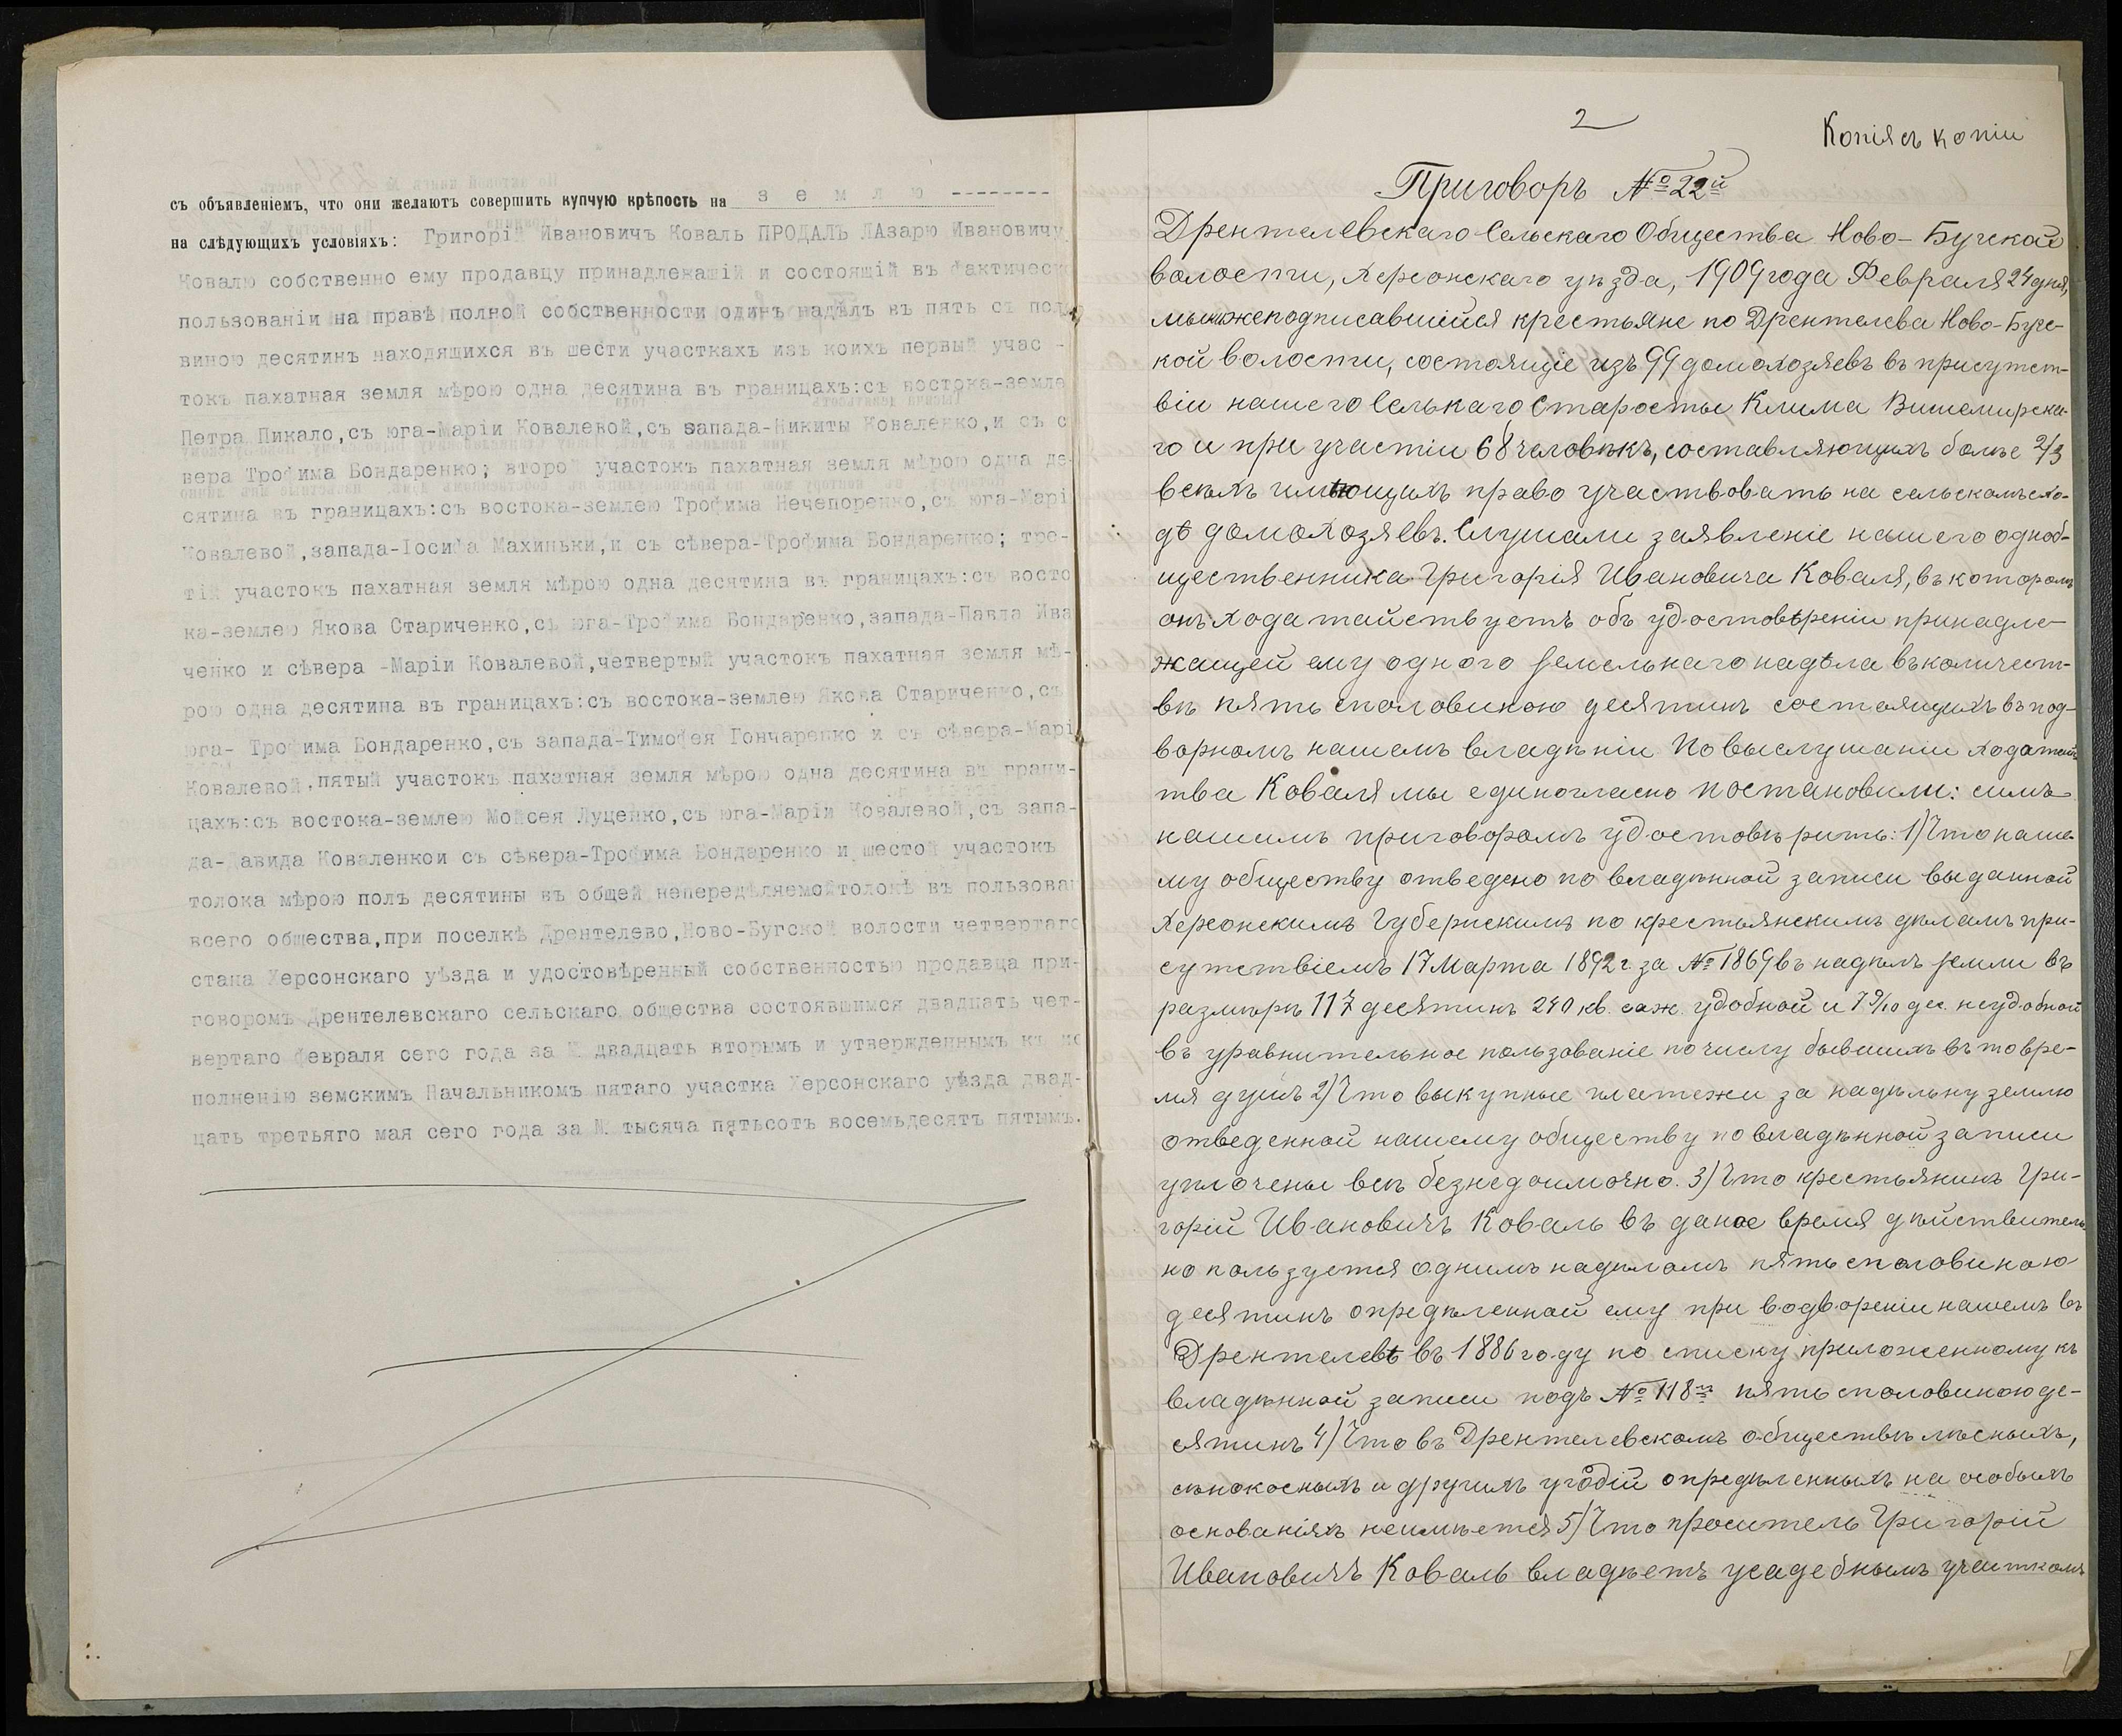 съ объявленіемъ, что они желаютъ совершить купчую крѣпость на з е м л ю --------
на слѣдующихъ условіяхъ: Григорій Ивановичъ Коваль ПРОДАЛЪ ЛАзарю Ивановичу
Ковалю собственно ему продавцу принадлежащій и состоящій въ фактическо
пользованіи на правѣ полной собственности одинъ надѣлъ въ пять съ поло
виною десятинъ находящихся въ шести участкахъ изъ коихъ первый учас -
токъ пахатная земля мѣрою одна десятина въ границахъ:съ востока-земле
Петра Пикало,съ юга-Маріи Ковалевой,съ запада-Никиты Коваленко,и съ с
вера Трофима Бондаренко; второй участокъ пахатная земля мѣрою одна де-
сятина въ границахъ:съ востока-землею Трофима Нечепоренко,съ юга-Марі
Ковалевой,запада-Іосифа Махиньки,и съ сѣвера-Трофима Бондаренко; тре-
тій участокъ пахатная земля мѣрою одна десятина въ границахъ:съ восто
ка-землею Якова Стариченко,съ юга-Трофима Бондаренко,запада-Павла Ива
ченко и сѣвера -Маріи Ковалевой,четвертый участокъ пахатная земля мѣ-
рою одна десятина въ границахъ:съ востока-землею Якова Стариченко,съ
юга- Трофима Бондаренко,съ запада-Тимофея Гончаренко и съ сѣвера-Марі
Ковалевой,пятый участокъ пахатная земля мѣрою одна десятина въ грани-
цахъ:съ востока-землею Мойсея Луценко,съ юга-Маріи Ковалевой,съ запа-
да-Давида Коваленкои съ сѣвера-Трофима Бондаренко и шестой участокъ
толока мѣрою полъ десятины въ общей непередѣляемойтолокѣ въ пользован
всего общества,при поселкѣ Дрентелево,Ново-Бугской волости четвертаго
стана Херсонскаго уѣзда и удостовѣренный собственностью продавца при-
говоромъ Дрентелевскаго сельскаго общества состоявшимся двадцать чет-
вертаго февраля сего года за № двадцать вторымъ и утвержденнымъ къ ис
полненію земскимъ Начальникомъ пятаго участка Херсонскаго уѣзда двад-
цать третьяго мая сего года за № тысяча пятьсотъ восемьдесятъ пятымъ.
2
Копія съ копіи
Приговоръ № 22й
Дрентелевскаго Сельскаго Общества Ново-Бугской
волости, Херсонскаго уѣзда, 1909 года Февраля 24 дня,
мы нижеподписавшійся крестьяне по Дрентелева Ново-Бугс-
кой волости, состоящіе изъ 99 домохозяевъ въ присутст-
віи нашего Селькаго Старосты Клима Вишемирска-
го и при участіи 68 человѣкъ, составляющихъ болѣе 2/3
всѣхъ имѣющихъ право участвовать на сельскомъ схо-
дѣ домохозяевъ. Слушали заявленіе нашего одноб-
щественника Григорія Ивановича Коваля, въ которомъ
онъ ходатайствуетъ объ удостовѣреніи принадле-
жащей ему одного земельнаго надѣла въ количест-
вѣ пять споловиною десятинъ состоящихъ въ под-
ворномъ нашемъ владѣніи По выслушаніи ходатайс
тва Коваля мы единогласно постановили: симъ
нашимъ приговоромъ удостовѣрить: 1) Что наше
му обществу отведено по владѣнной записи выданной
Херсонскимъ Губернскимъ по крестьянскимъ дѣламъ при-
сутствіемъ 17 Марта 1892 г за № 1869 въ надѣлъ земли въ
размѣрѣ 117 десятинъ 240 кв. саж. удобной и 7 9/10 дес. неудобной
въ уравнительное пользованіе по числу бывшихъ въ то вре-
мя душъ 2) Что выкупные платежи за надѣльну землю
отведенной нашему обществу по владѣнной записи
уплочены всѣ безнедоимочно. 3) Что крестьянинъ Гри-
горій Ивановичъ Коваль въ даное время дѣйствитель
но пользуется однимъ надѣломъ пять споловиною
десятинъ опредѣленной ему при водвореніи нашемъ въ
Дрентелевѣ въ 1886 году по списку приложенному къ
владѣнной записи подъ № 118мъ пять споловиною де-
сятинъ 4) Что въ Дрентелевскомъ обществѣ лѣсныхъ,
сѣнокосныхъ и другихъ угодій опредѣленныхъ на особыхъ
основаніяхъ неимѣется 5) Что проситель Григорій
Ивановичъ Коваль владѣетъ усадебнымъ участкомъ